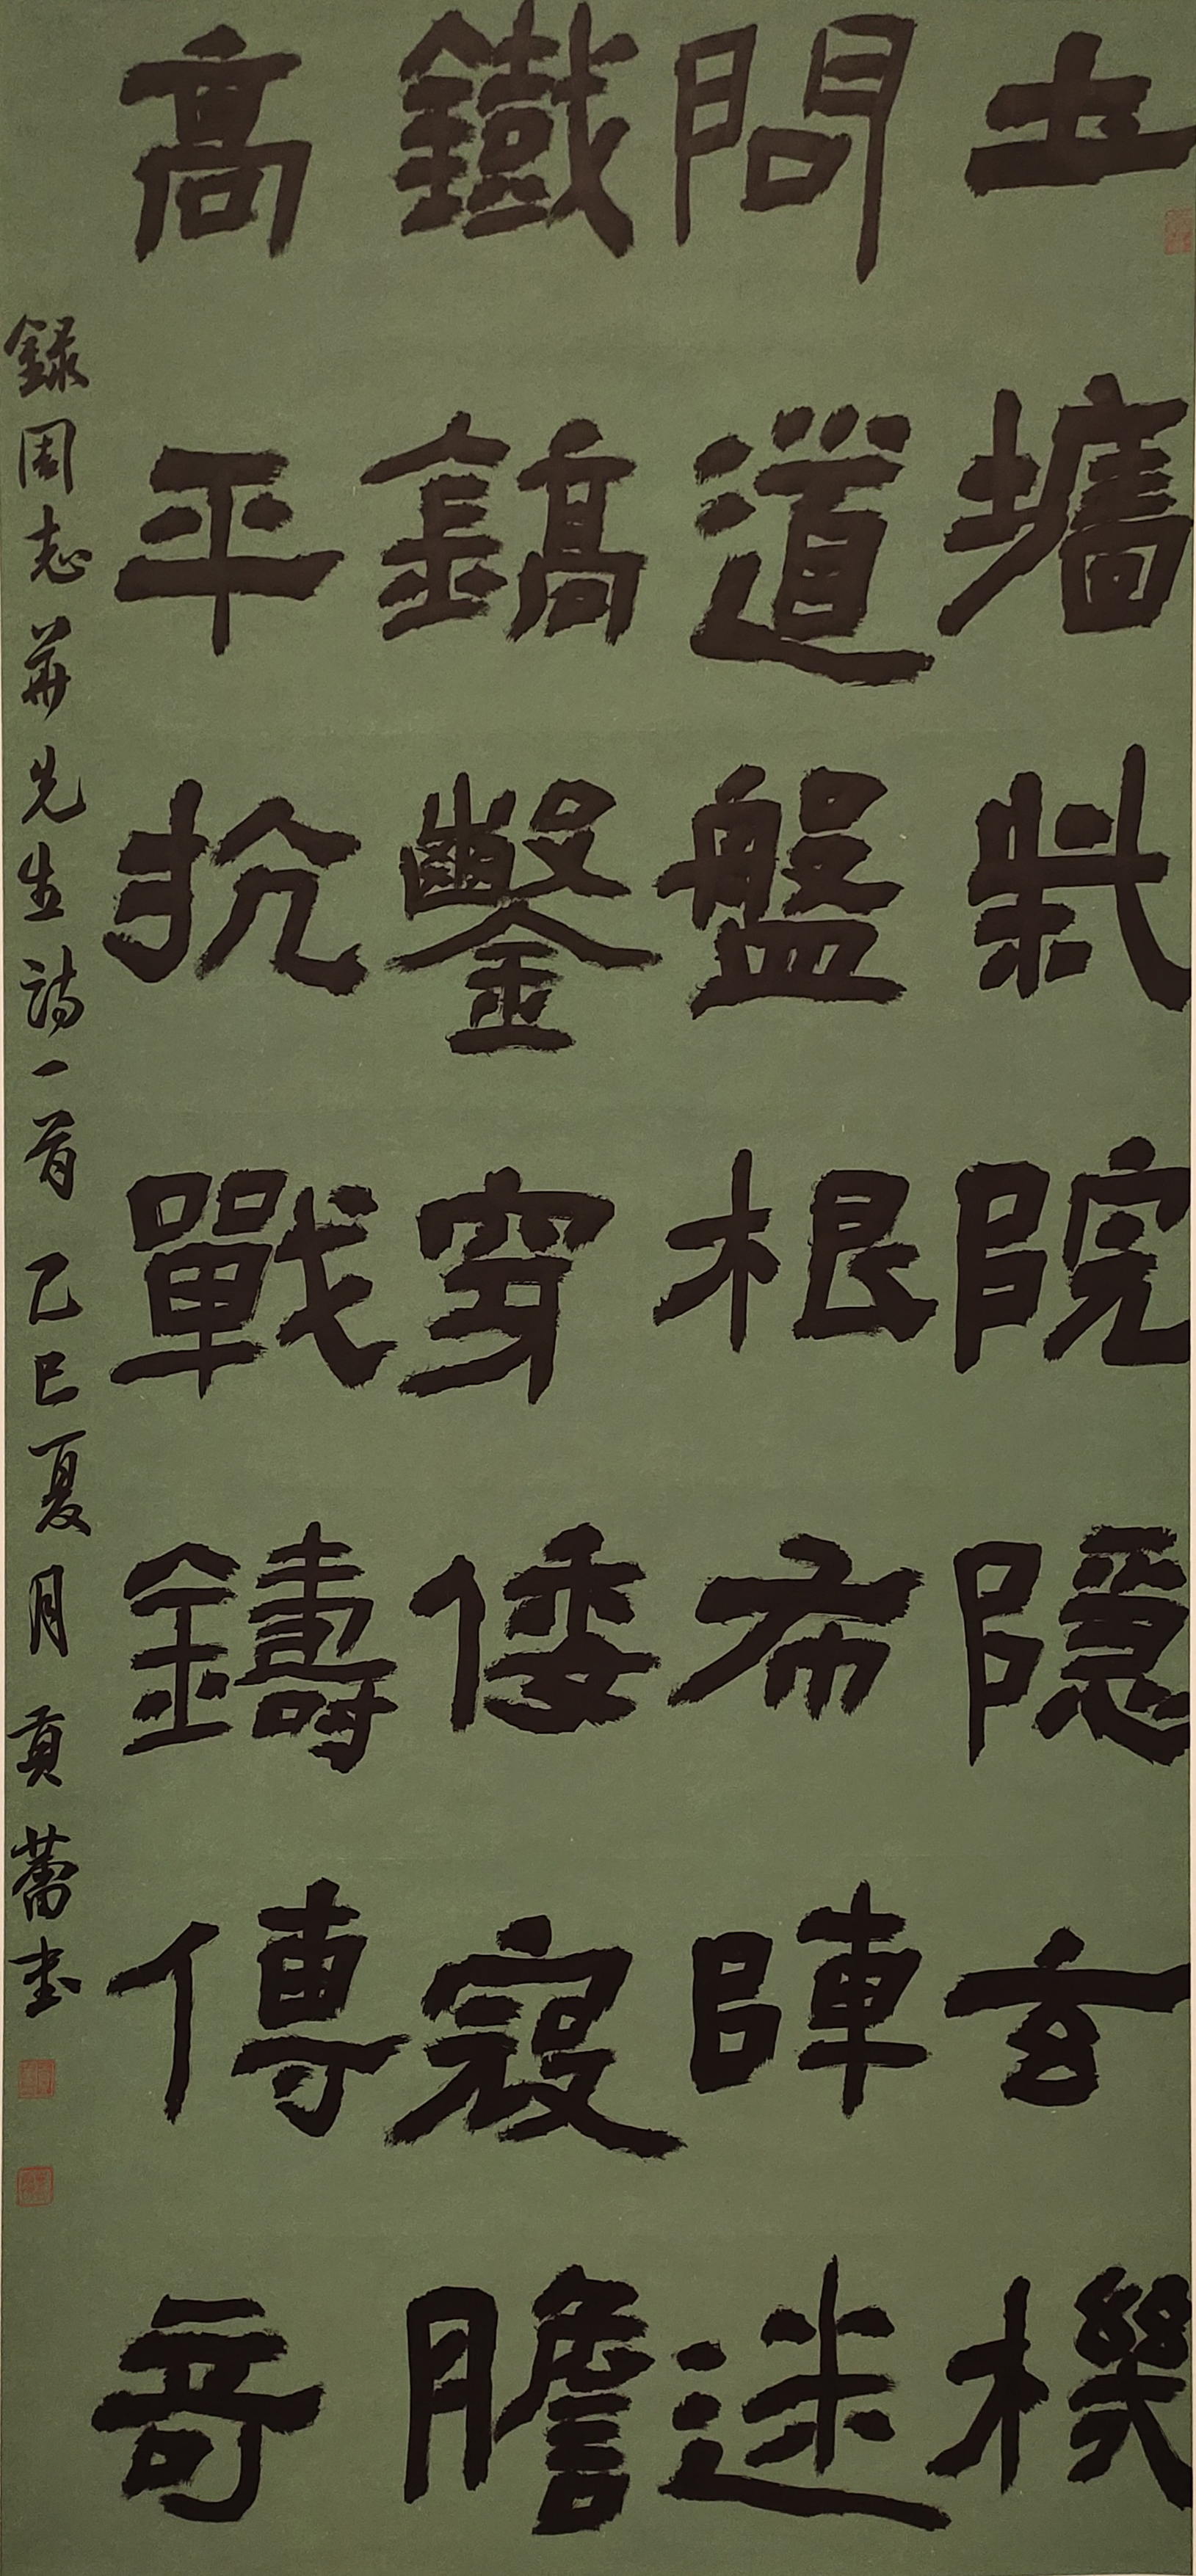 土墻院隱玄機
問道盤根布陣迷
鐵鎬鑿穿倭寇膽
高平抗戰鑄傳奇
錄周志華先生詩一首 乙巳夏月 貢蕾書